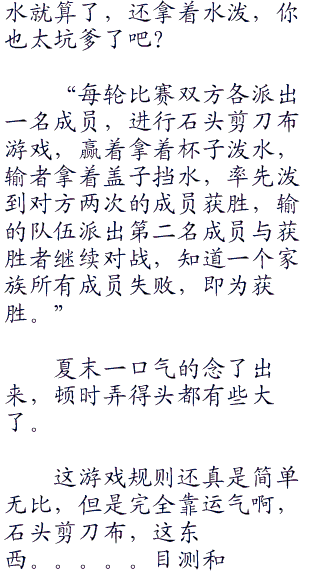 水就算了，还拿着水泼，你
也太坑爹了吧？
“每轮比赛双方各派出
一名成员，进行石头剪刀布
游戏，赢着拿着杯子泼水，
输者拿着盖子挡水，率先泼
到对方两次的成员获胜，输
的队伍派出第二名成员与获
胜者继续对战，知道一个家
族所有成员失败，即为获
胜。”
夏末一口气的念了出
来，顿时弄得头都有些大
了。
这游戏规则还真是简单
无比，但是完全靠运气啊，
石头剪刀布，这东
西。。。。。目测和